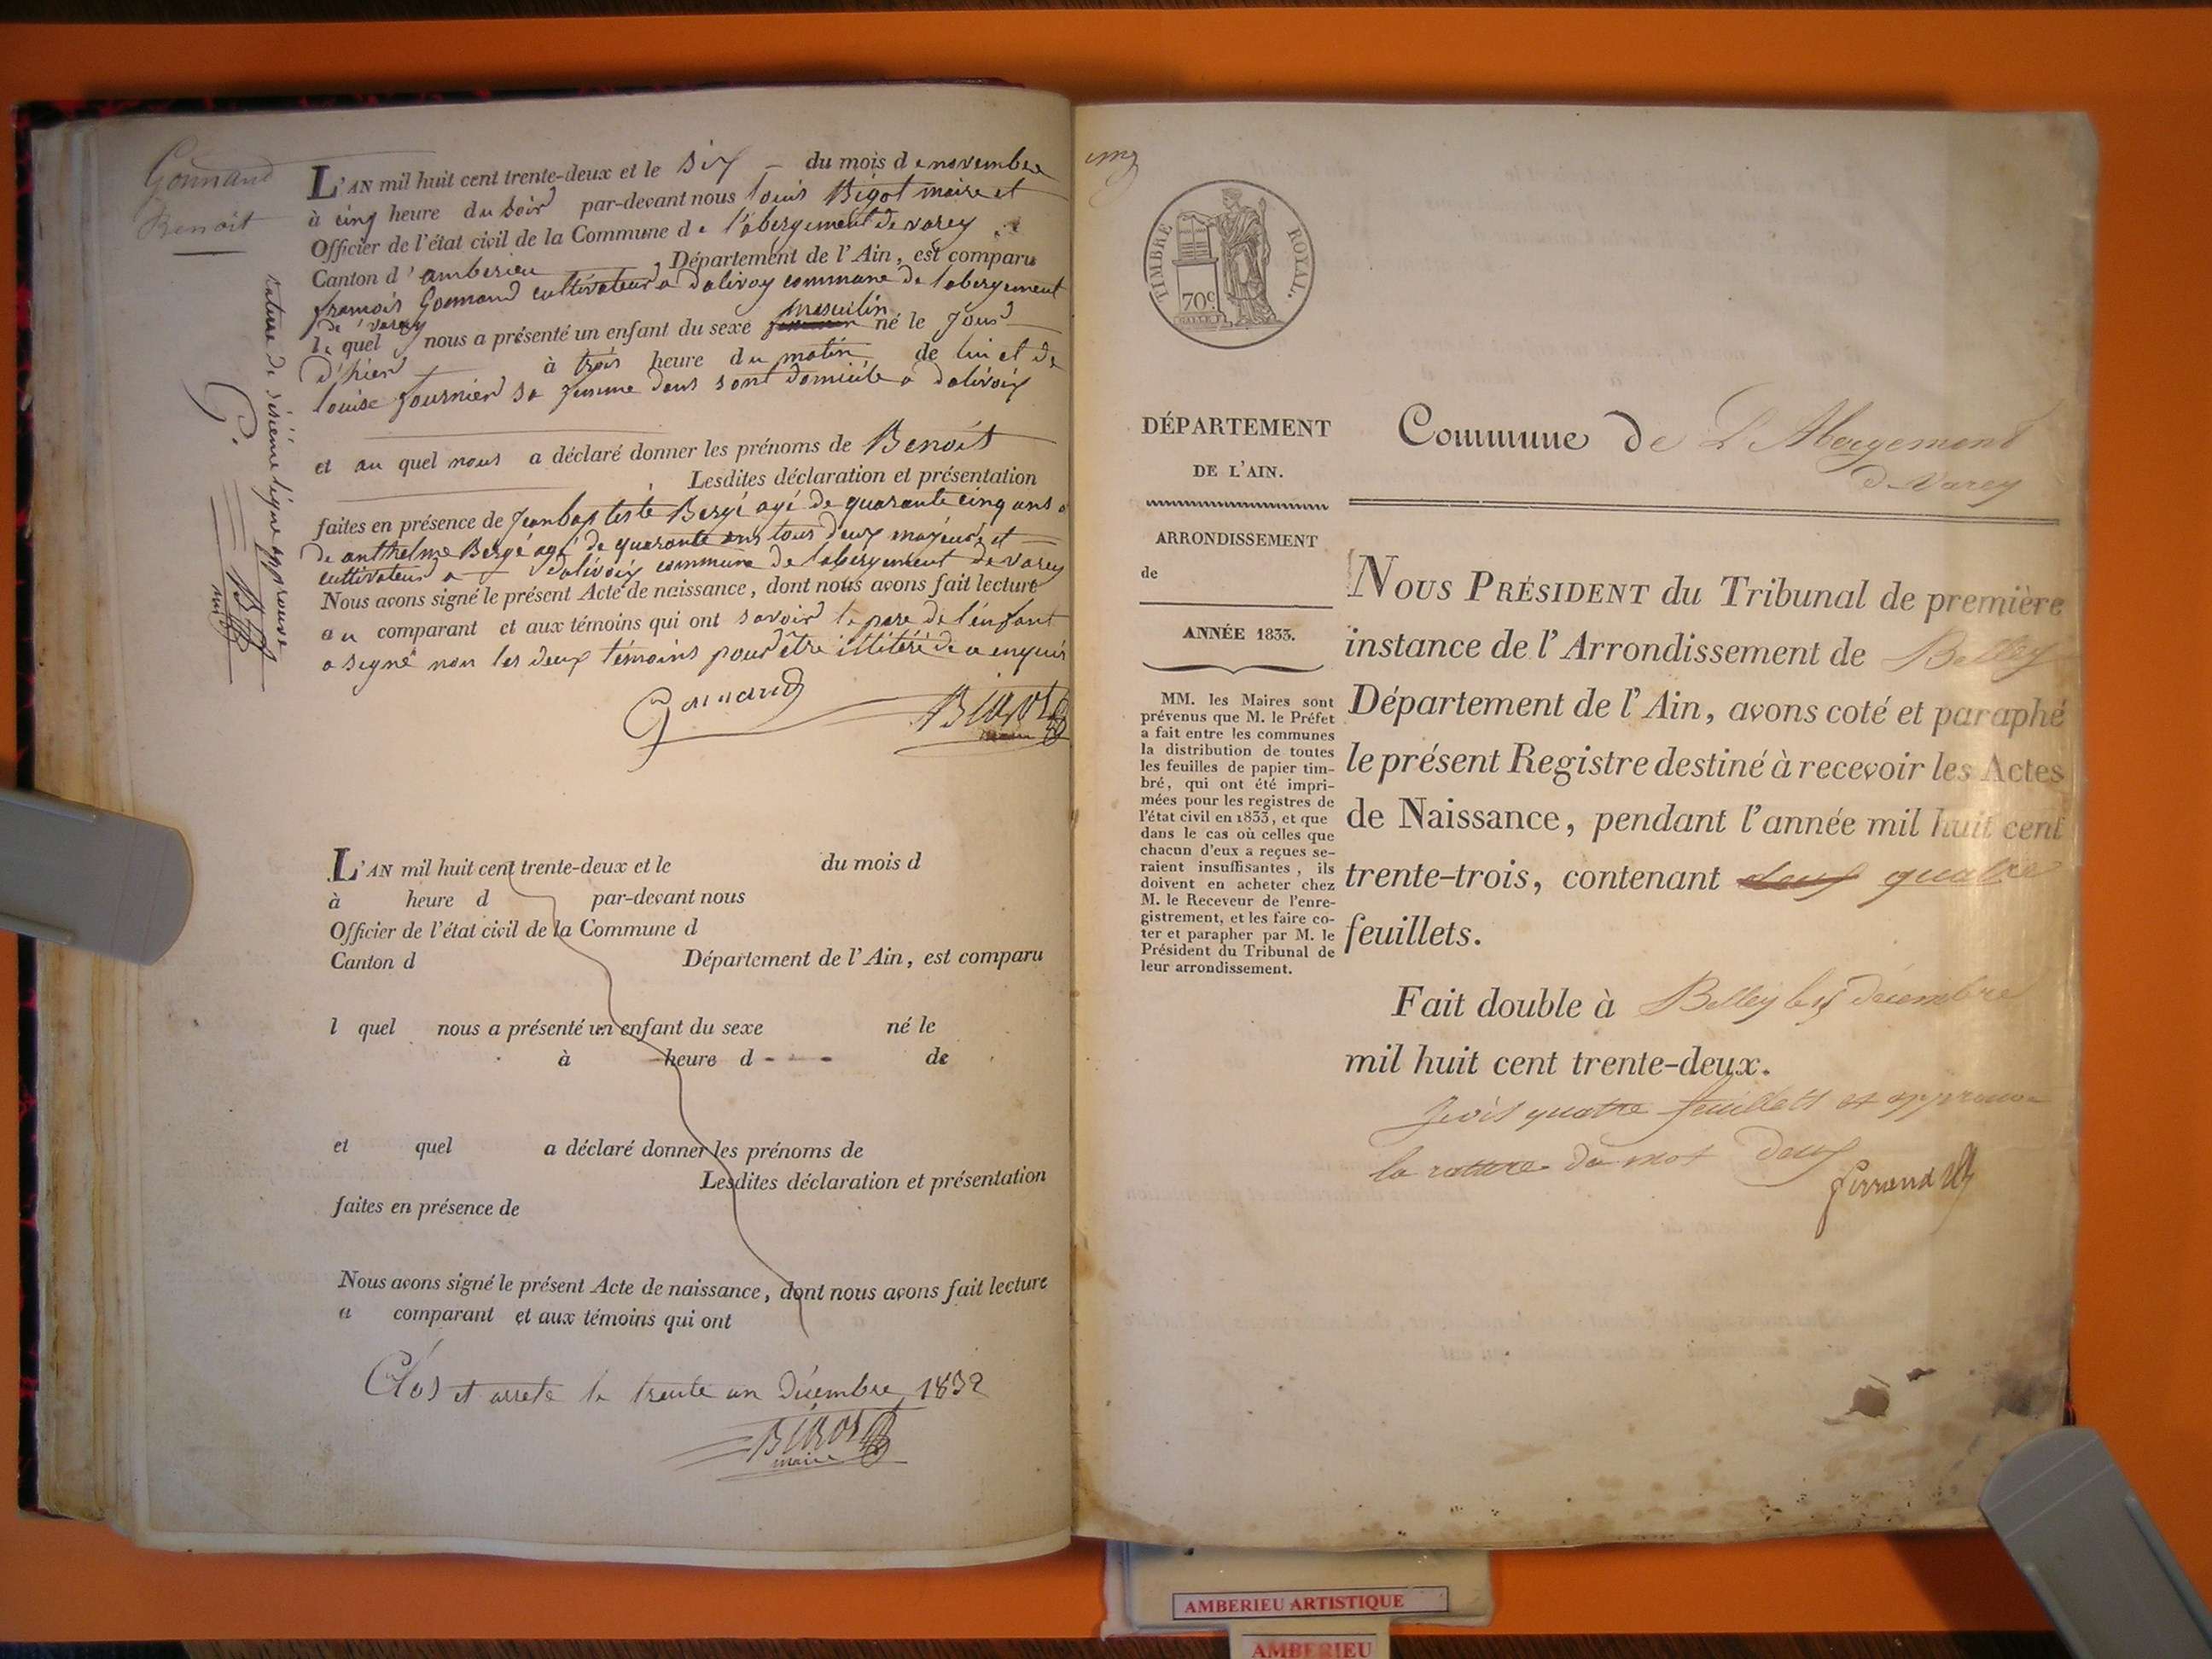 Gonnand
Benoit
L'AN mil huit cent trente-deux et le six du mois de novembre
à cinq heure du soir par-devant nous louis Bigot maire et
Officier de l'état civil de la Commune de l'abergement de varey
Canton d'amberieu Département de l'Ain, est comparu
francois Gonnand cultivateur a dalivoy commune de labergement
de varey
le quel nous a présenté un enfant du sexe masculin né le jour
d'hier à trois heure du matin de lui et de
louise fournier sa femme dans sont domicile a dalivoix
et au quel nous a déclaré donner les prénoms de Benoit
Lesdites déclaration et présentation
faites en présence de Jean baptiste Bergé agé de quarante cinq ans
de anthelme Bergé agé de quarante ans tous deux majeurs et
cultivateur a dalivoix commune de labergement de varey
Nous avons signé le présent Acte de naissance, dont nous avons fait lecture
au comparant et aux témoins qui ont savoir le pere de l'enfant
a signé non les deux témoins pour être illitéré de a enquis
Gonnand
BIGOT
maire
rature de sixième ligne approuvé
G.
L'AN mil huit cent trente-deux et le du mois d
à heure d par-devant nous
Officier de l'état civil de la Commune d
Canton d Département de l'Ain, est comparu
l quel nous a présenté un enfant du sexe né le
à heure d de
et quel a déclaré donner les prénoms de
Lesdites déclaration et présentation
faites en présence de
Nous avons signé le présent Acte de naissance, dont nous avons fait lecture
a comparant et aux témoins qui ont
Clos et arrete le trente un Décembre 1832
BIGOT
maire
TIMBRE ROYAL.
70c
DÉPARTEMENT
DE L'AIN.
ARRONDISSEMENT
de
ANNÉE 1833.
MM. les Maires sont
prévenus que M. le Préfet
a fait entre les communes
la distribution de toutes
les feuilles de papier tim-
bré, qui ont été impri-
mées pour les registres de
l'état civil en 1833, et que
dans le cas où celles que
chacun d'eux a reçues se-
raient insuffisantes, ils
doivent en acheter chez
M. le Receveur de l'enre-
gistrement, et les faire co-
ter et parapher par M. le
Président du Tribunal de
leur arrondissement.
Commune de L'Abergement
de Varey
NOUS PRÉSIDENT du Tribunal de première
instance de l'Arrondissement de Belley
Département de l'Ain, avons coté et paraphé
le présent Registre destiné à recevoir les Actes
de Naissance, pendant l'année mil huit cent
trente-trois, contenant deux quatre
feuillets.
Fait double à Belley le décembre
mil huit cent trente-deux.
quatre feuillets et approuve
la rature du mot deux
AMBERIEU ARTISTIQUE
AMBERIEU